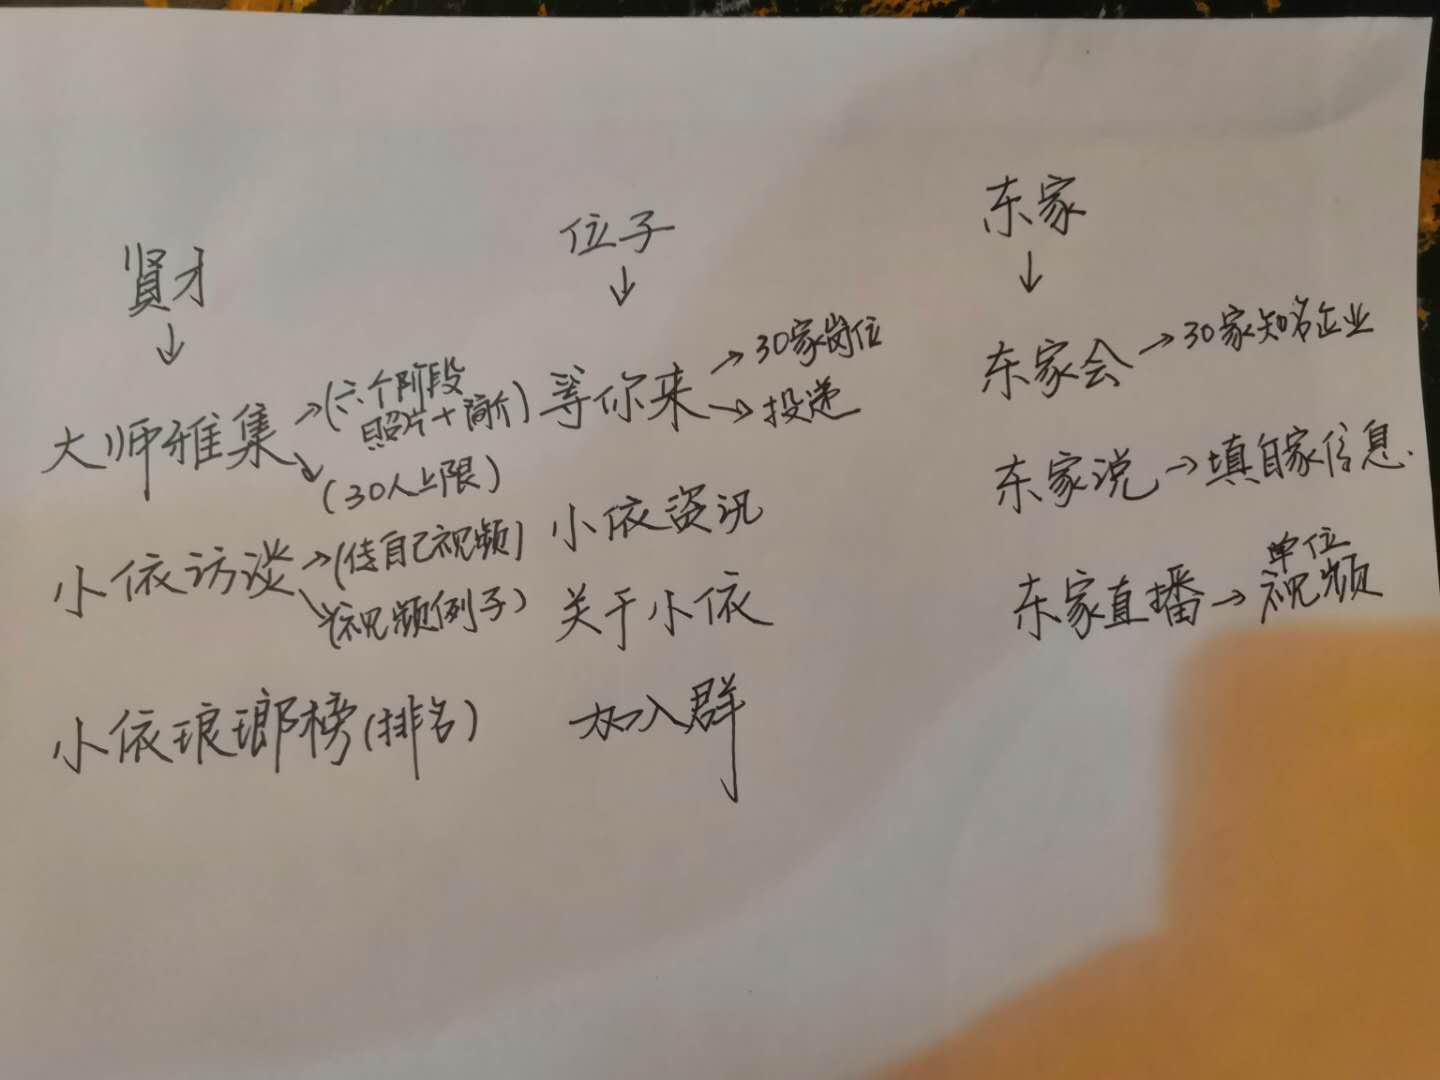 贤才
↓
大师雅集→(六个阶段
照片+简介)
↘(30人上限)
小依访谈→(传自己视频)
↘(视频例子)
小依琅琊榜(排名)
位子
↓
等你来→30家岗位
→投递
小依资讯
关于小依
加入群
东家
↓
东家会→30家知名企业
东家说→填自家信息.
东家直播→单位
视频